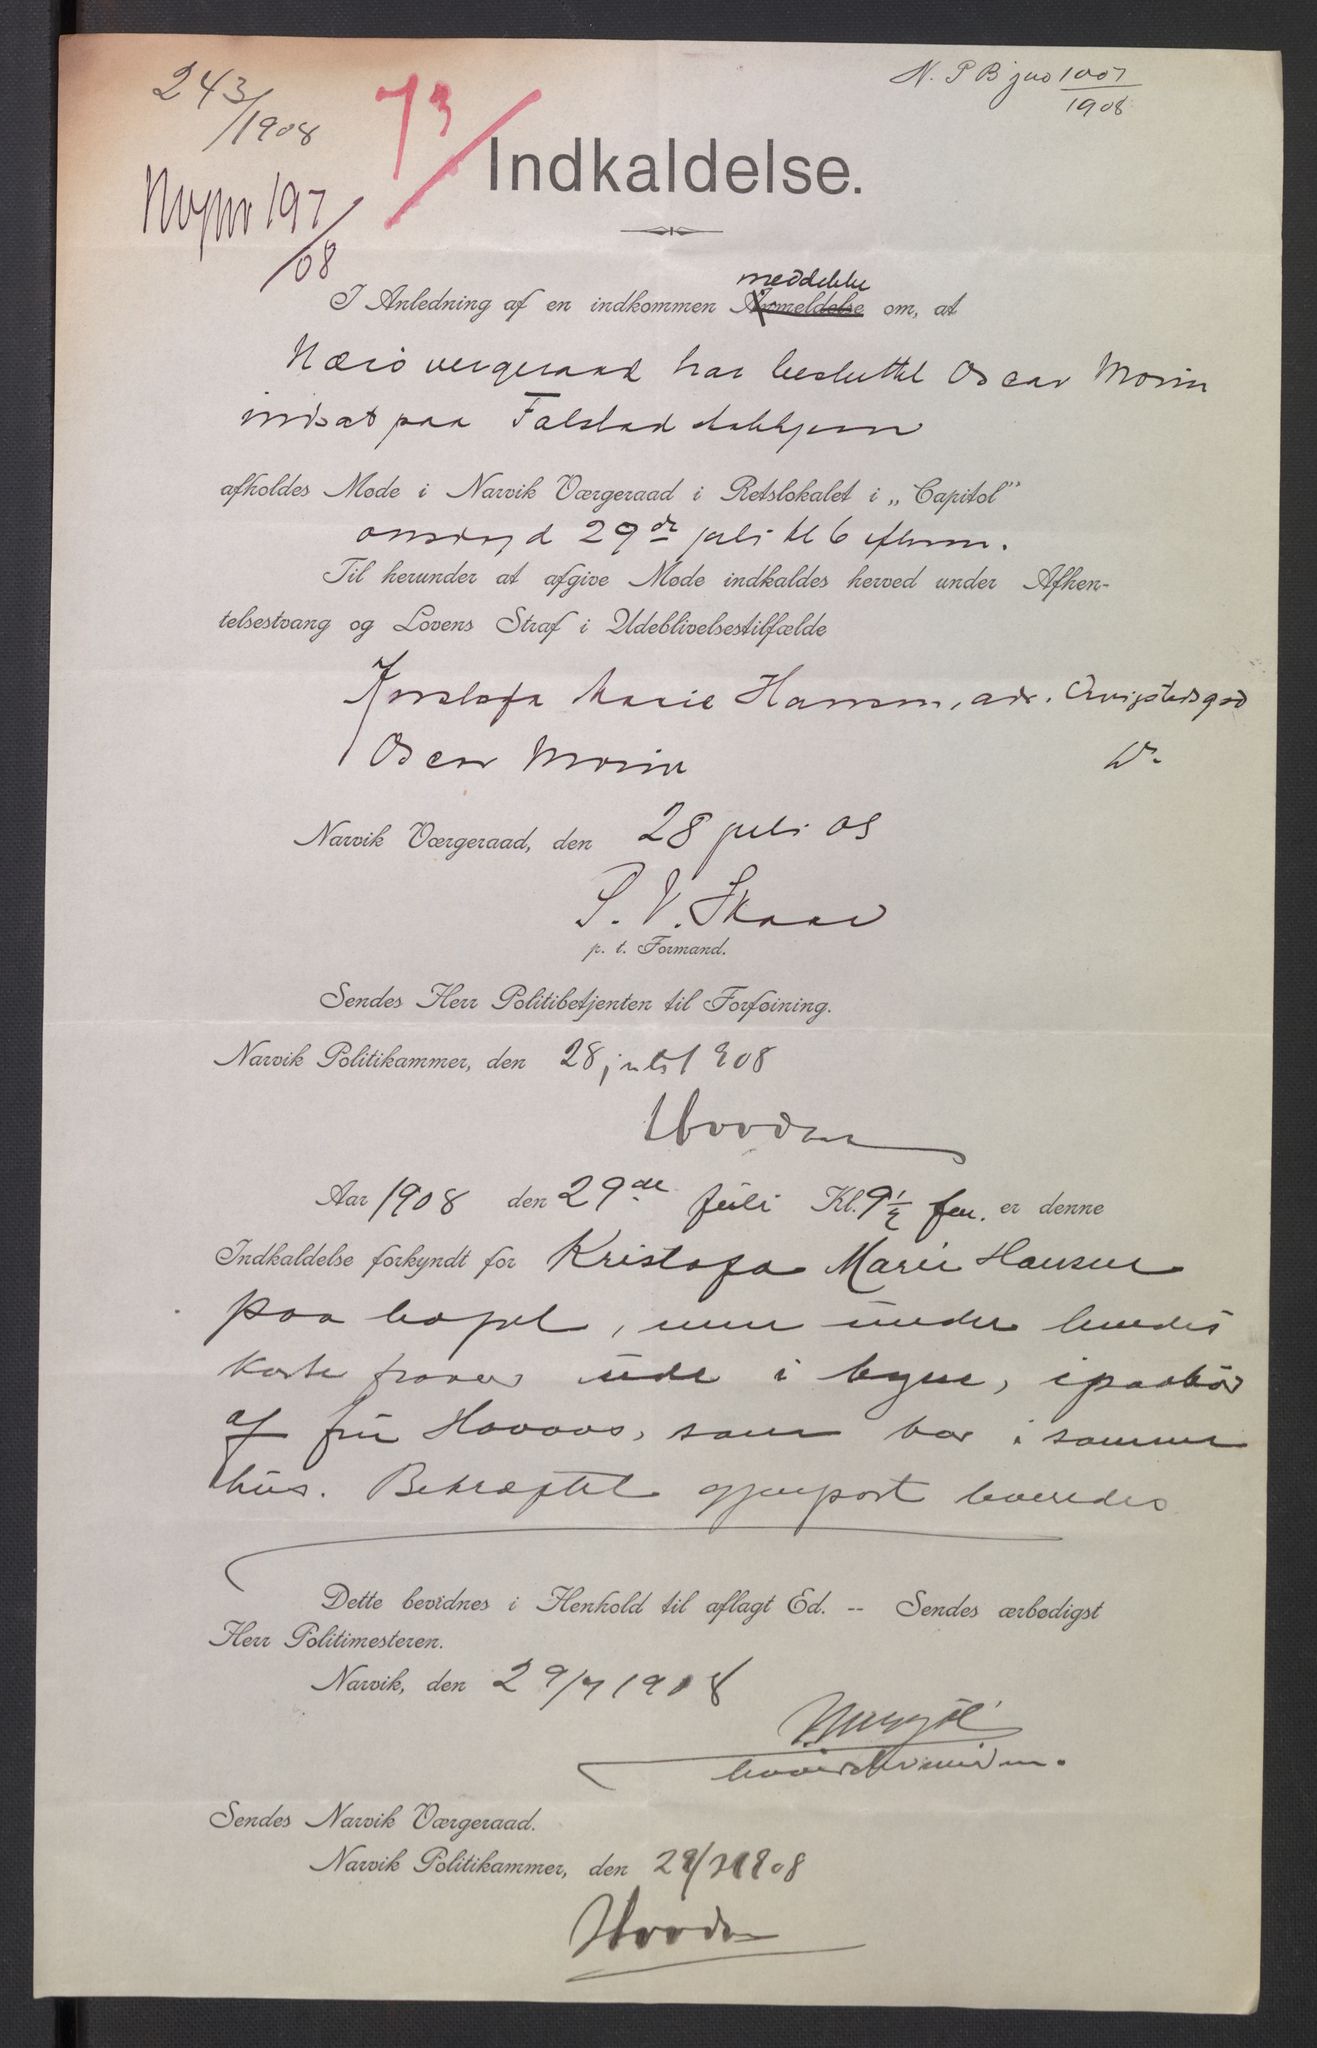 243/1908
73/
N. P B jno 1007/1908
Indkaldelse.
197/08
meddelelse
I Anledning af en indkommen Anmeldelse om, at
Nærø vergeraad har besluttet Oscar Morin
indsat paa Falstad skolehjem
afholdes Møde i Narvik Værgeraad i Retslokalet i „Capitol”
onsdag d 29de juli kl 6 efterm.
Til herunder at afgive Møde indkaldes herved under Afhen-
telsestvang og Lovens Straf i Udeblivelsestilfælde
Kristofa Marie Hansen, adr.
Oscar Morin Do
Narvik Værgeraad, den 28 juli 08
P. V. Skaar
p. t. Formand.
Sendes Herr Politibetjenten til Forføining.
Narvik Politikammer, den 28 juli 1908
Aar 1908 den 29de Juli Kl. 9½ fm. er denne
Indkaldelse forkyndt for Kristofa Marie Hansen
paa bopæl, men under hendes
korte fravær ude i byen, i paahør
af fru som bor i samme
hus. Bekræftet gjenpart leveredes
Dette bevidnes i Henhold til aflagt Ed. -- Sendes ærbødigst
Herr Politimesteren.
Narvik, den 29/7 1908
Sendes Narvik Værgeraad.
Narvik Politikammer, den 29/7 1908